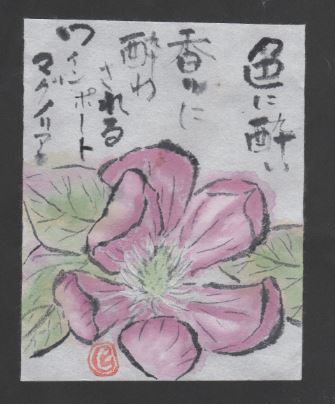 色に酔い
香りに
酔わ
される
ワインポート
マグノリア